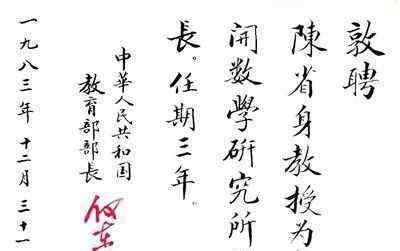 敦聘
陳省身教授为
開数學研究所
長。任期三年。
中華人民共和国
教育部部長
一九八三年十二月三十一